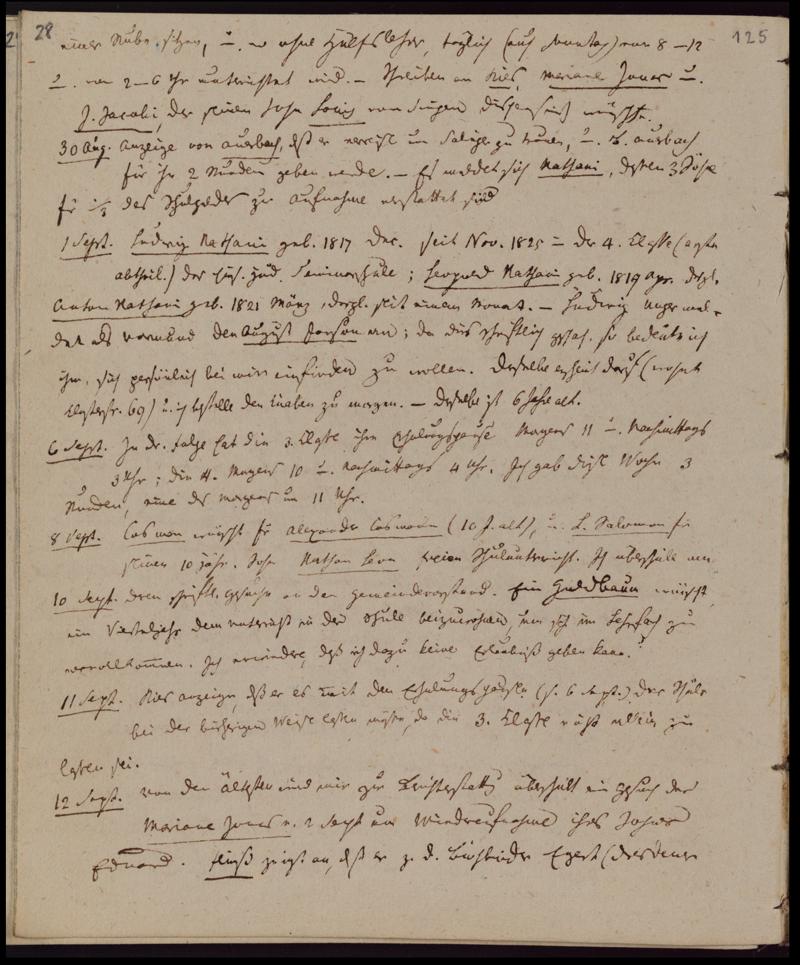 28 125
einer Stube sitzen, u. wo ohne Hülfslehrer, täglich (auch Sonntag) von 8–12
u. von 2–6 Uhr unterrichtet wird. – Schreiben an Kies, Mariane Jonas u.
J. Jacobi, der seinen Sohn Louis vom Singen dispensirt wünscht.
30 Aug. Anzeige von Auerbach, daß er verreist um Salinger zu trauen, u. B. Auerbach
für ihn 2 Stunden geben werde. – Es meldet sich Nathani, dessen 3 Söhne
für 1/3 des Schulgeldes zur Aufnahme verstattet sind
1 Sept. Ludwig Nathani geb. 1817 Dec. seit Nov. 1825 in der 4. Classe (erste
abtheil.) der hies. jüd. Seminarschule; Leopold Nathani geb. 1819 Apr. desgl.
Anton Nathani geb. 1821 März, desgl. seit einem Monat. – Ludwig angemel-
det als Vormund den August an; da dies schriftlich geschah, so bedeute ich
ihm, sich persönlich bei mir einfinden zu wollen. Derselbe erscheint darauf (wohnt
Klosterstr. 69) u. ich bestelle den Knaben zu morgen. – Derselbe ist 6 Jahr alt.
6 Sept. In der Folge hat die 3. Classe ihre Erholungspause Morgens 11 u. Nachmittags
3 Uhr; die 4. Morgens 10 u. Nachmittags 4 Uhr. Ich gab diese Woche 3
Stunden, eine des Morgens um 11 Uhr.
8 Sept. Cosman wünscht für Alexander Cosmann (10 J. alt), u. L. Salomon für
seinen 10jähr. Sohn Nathan Leon freien Schulunterricht. Ich überschicke am
10 Sept. deren schriftl. Gesuche an den Gemeindevorstand. Ein Goldbaum wünscht
ein Vierteljahr dem Unterricht in der Schule beizuwohnen, um sich im Lehrfach zu
vervollkommnen. Ich erwiedere, daß ich dazu keine Erlaubniß geben kann.
11 Sept. Kies anzeige, daß er es mit den Erholungspausen (s. 6 Sept.) der Schule
bei der bisherigen Weise lassen müsse, da die 3. Classe nicht allein zu
lassen sei.
12 Sept. Von den Ältesten wird mir zur Berichterstattg überschickt ein Gesuch der
Mariane Jonas v. 2 Sept um Wiederaufnahme ihres Sohnes
Eduard. zeigt an, daß er z. d. Buchbinder Egert (Dresdener